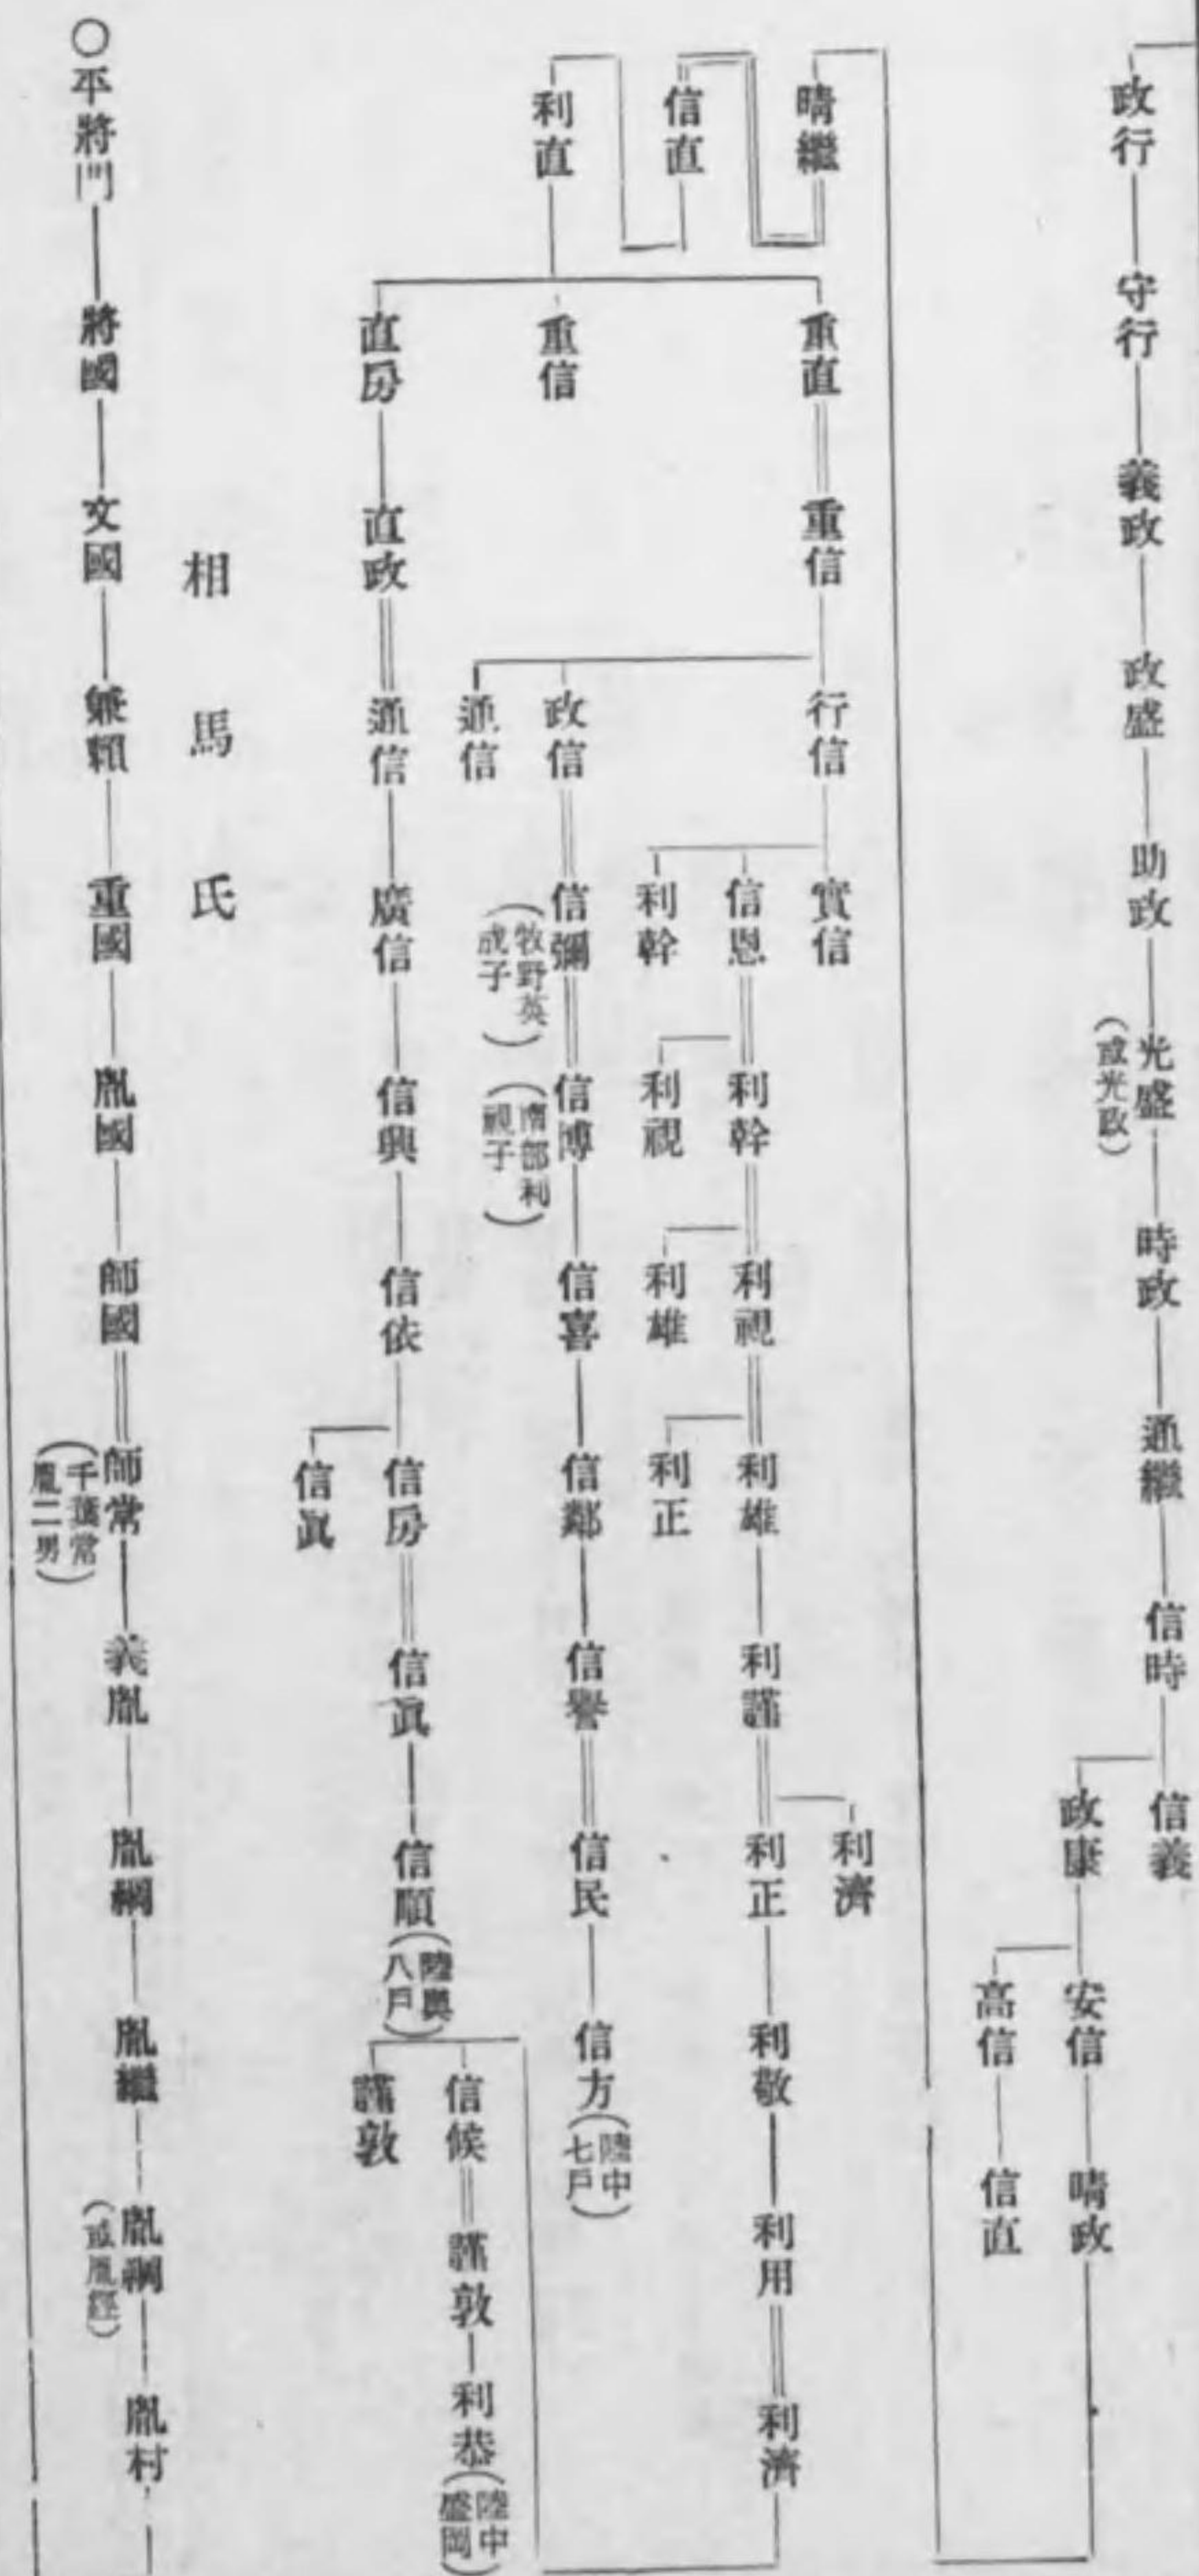 政行 守行 義政 政盛 助政 光盛(或光政) 時政 通繼 信時 信義
政康 安信 晴政
高信 信直
晴繼
信直
利直
重直 重信 行信 實信
信恩 利幹 利視 利雄 利謹 利正 利敬 利用 利濟
利濟
利幹
利視
利雄
利正
政信 信彌(牧野英成子) 信博(南部利視子) 信喜 信鄰 信譽 信民 信方(陸中七戶)
通信
重信
信候 謹敦 利恭(陸中盛岡)
謹敦
直房 直政 通信 廣信 信興 信依 信房 信眞 信順(陸奧八戶)
信眞
相馬氏
〇平將門 將國 文國 兼頼 重國 胤國 師國 師常(千葉常胤二男) 義胤 胤綱 胤繼 胤綱(或胤經) 胤村